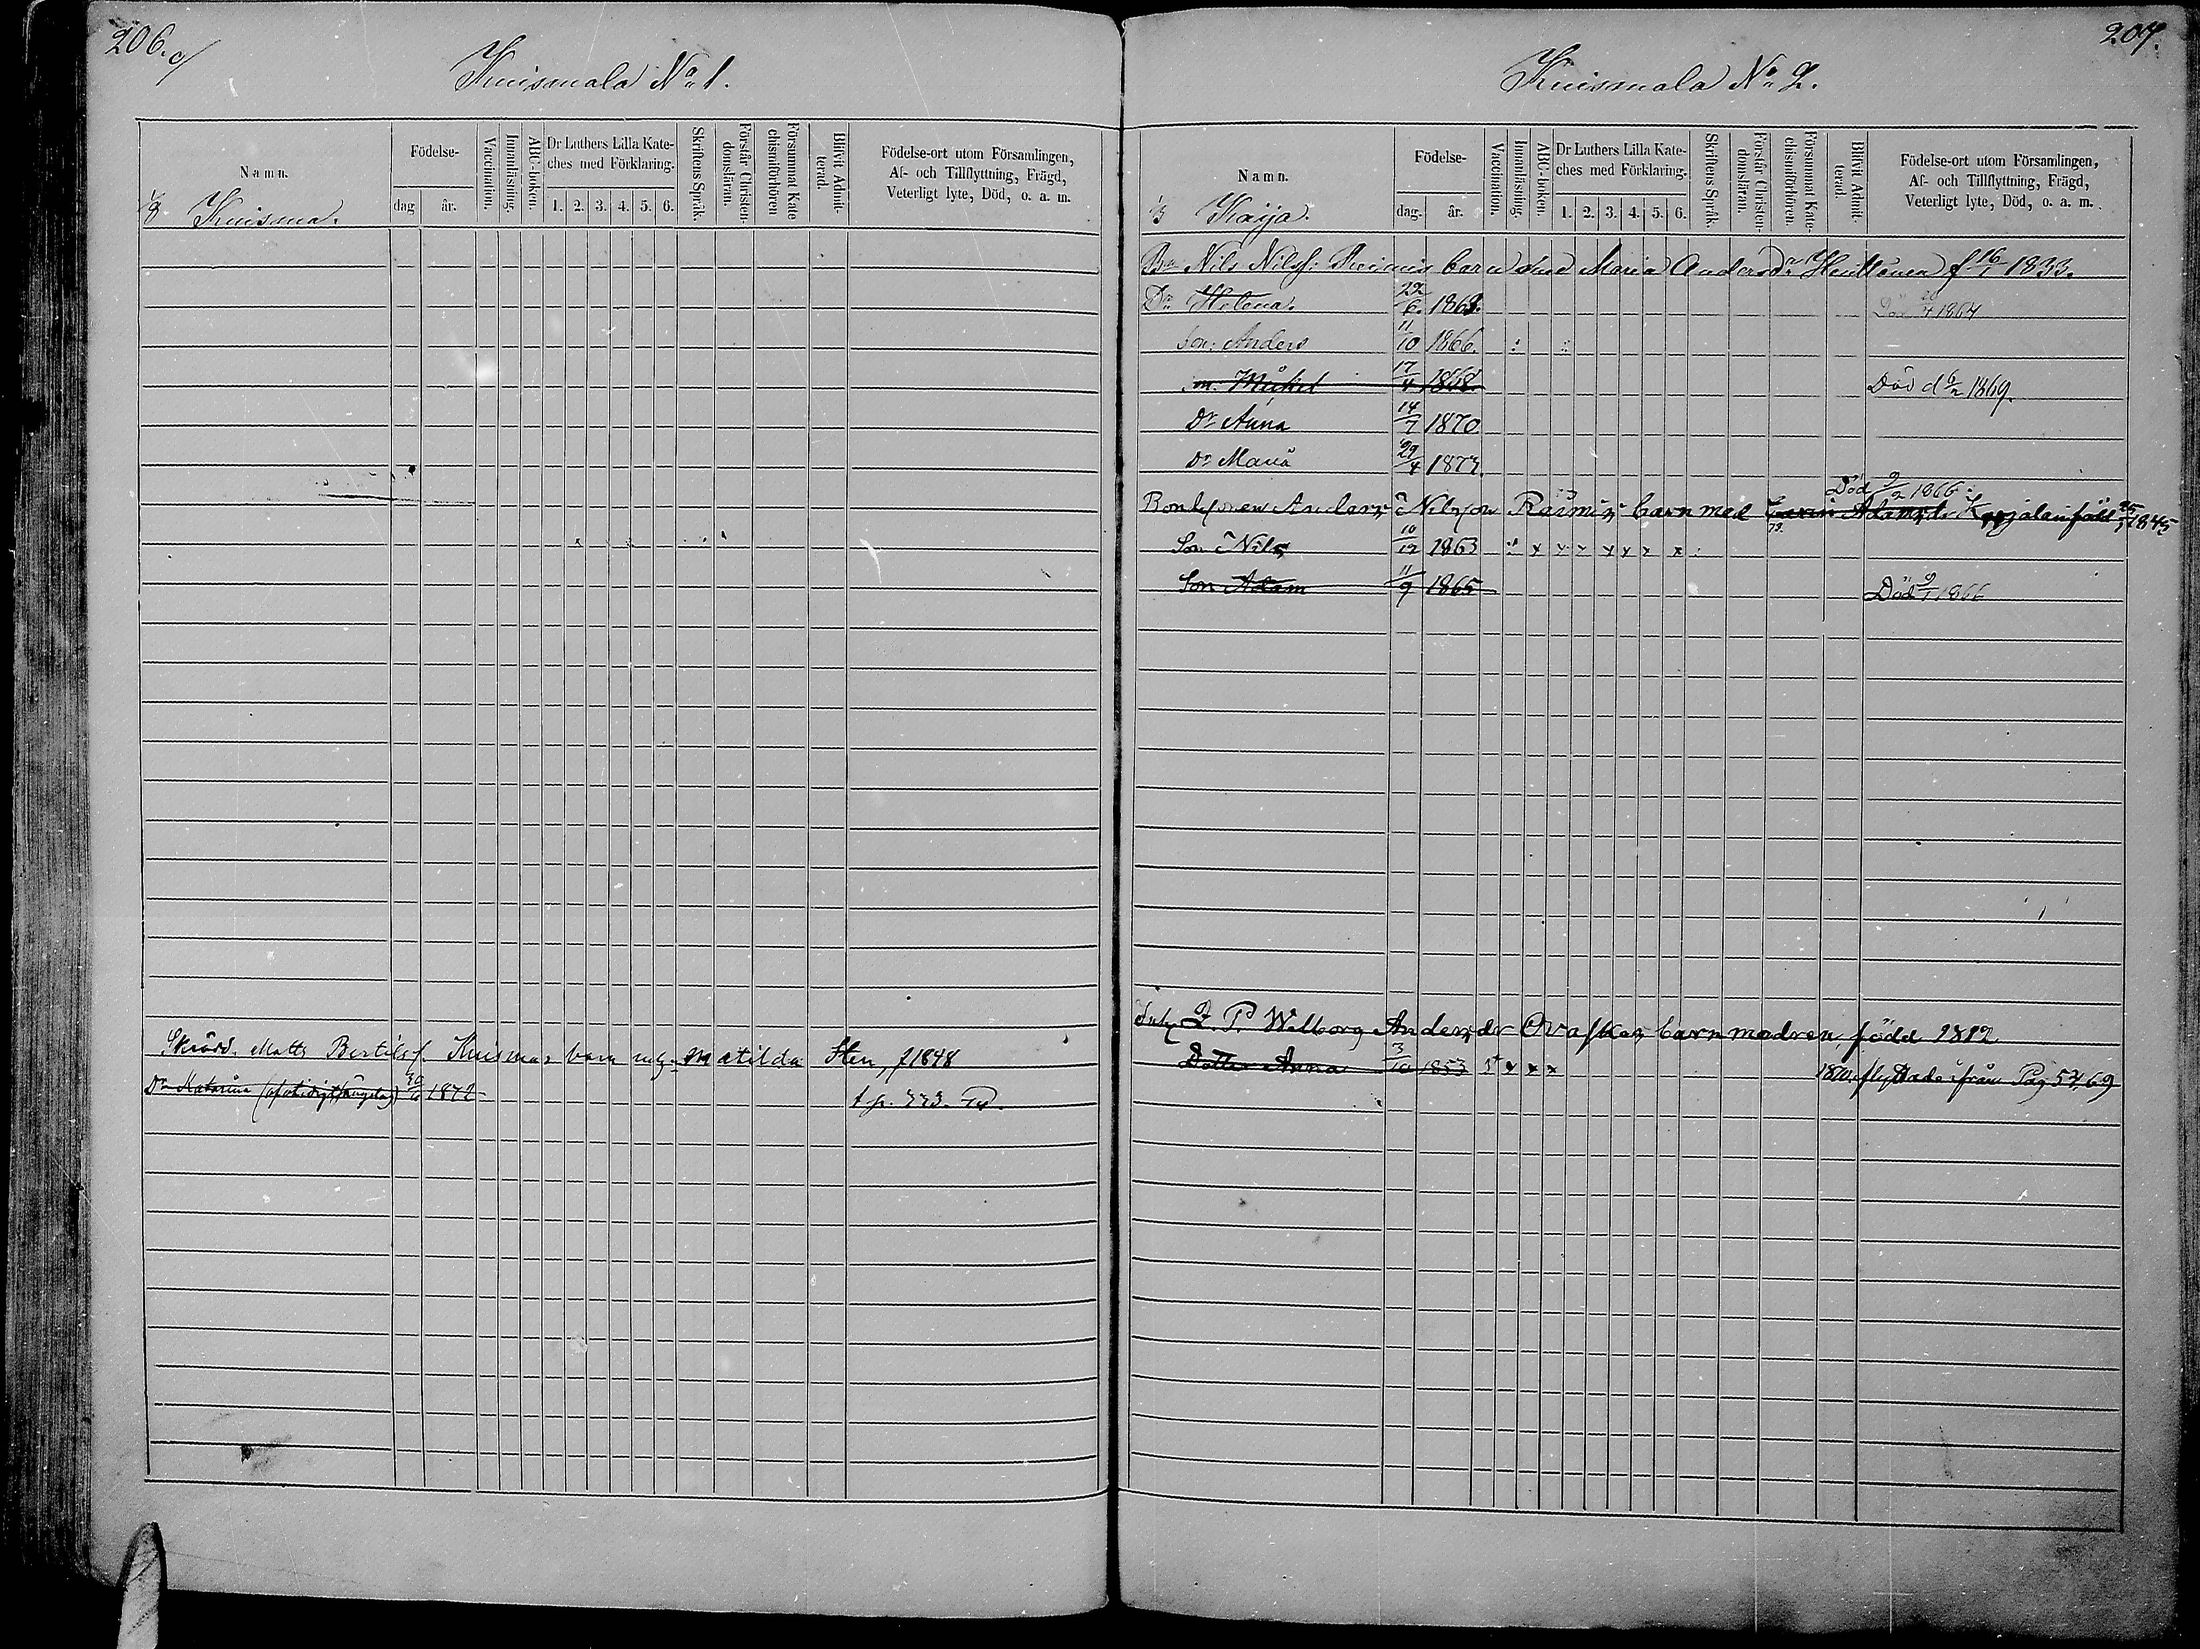 206.
Kuismala No 1.
Namn.
Födelse-
dag år.
Vaccination.
Innanläsning.
ABC-boken.
Dr Luthers Lilla Kate-
ches med Förklaring.
1. 2. 3. 4. 5. 6.
Skriftens Språk.
Förstår Christen-
domsläran.
Försummat Kate
chismiförhören
Blifvit Admit-
terad.
Födelse-ort utom Församlingen,
Af- och Tillflyttning, Frägd,
Veterligt lyte, Död, o. a. m.
Kuisma.
Matts Bertilsf. Kuismas barn Matilda Sten, f 1848
Dr Katarina 1872 t p. 773.
207.
Kuismala No 2.
Namn.
Födelse-
dag. år.
Vaccination.
Innanläsning.
ABC-boken.
Dr Luthers Lilla Kate-
ches med Förklaring.
1. 2. 3. 4. 5. 6.
Skriftens Språk.
Förstår Christen-
domsläran.
Försummat Kate-
chismiförhören.
Blifvit Admit-
terad.
Födelse-ort utom Församlingen,
Af- och Tillflyttning, Frägd,
Veterligt lyte, Död, o. a. m.
1/3 Kaija.
Bn Nils Nilsf: barn med Maria Andersdr f. 16/1 1833.
Dr Helena. 22/6. Död 20/4 1864
Son: Anders 11/10 1866.
Son: Mickel 17/4 1868. Död d 6/2 1869.
Dr Anna 14/7 1870
Dr Maria 29/4
Död 9/2 1866.
Bondesonen Anders Nilsson Räimis barn med Adamsdr Karjalain född 1845
Son Nils 10/12 1863 x x x x x x x
Son Adam 11/9 1865 Död 9/1 1866
Enk. Walborg Andersdr Ovaskas barn modren född 1812
Dotter Anna 3/10 1853 x x x 1870 från Pag 5269